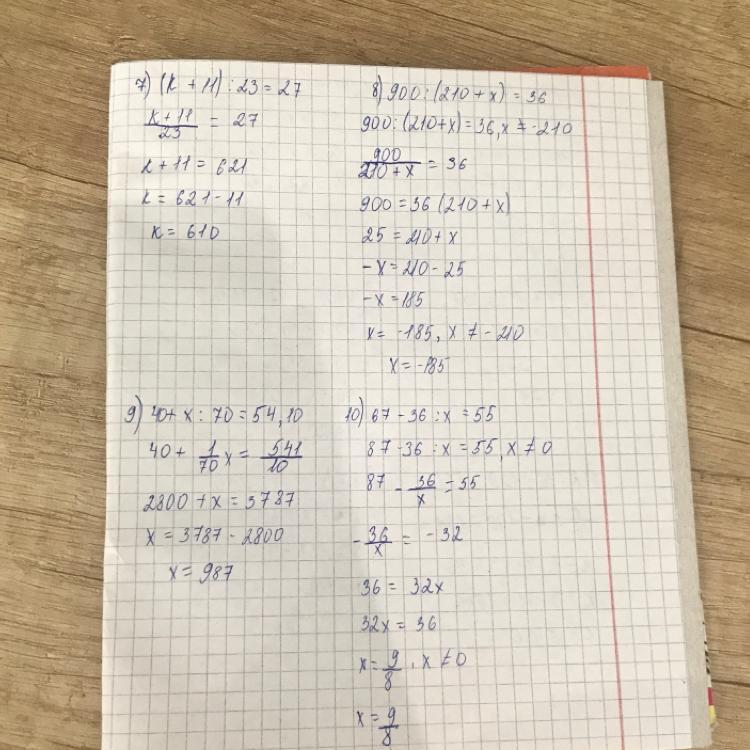 7) (k + 11) : 23 = 27
k + 11 / 23 = 27
k + 11 = 621
k = 621 - 11
k = 610
8) 900 : (210 + x) = 36
900 : (210 + x) = 36, x ≠ -210
900 / 210 + x = 36
900 = 36 (210 + x)
25 = 210 + x
-x = 210 - 25
-x = 185
x = -185, x ≠ -210
x = -185
9) 40 + x : 70 = 54,10
40 + 1/70 x = 541/10
2800 + x = 3787
x = 3787 - 2800
x = 987
10) 67 - 36 : x = 55
87 - 36 : x = 55, x ≠ 0
87 - 36/x = 55
- 36/x = -32
36 = 32x
32x = 36
x = 9/8, x ≠ 0
x = 9/8